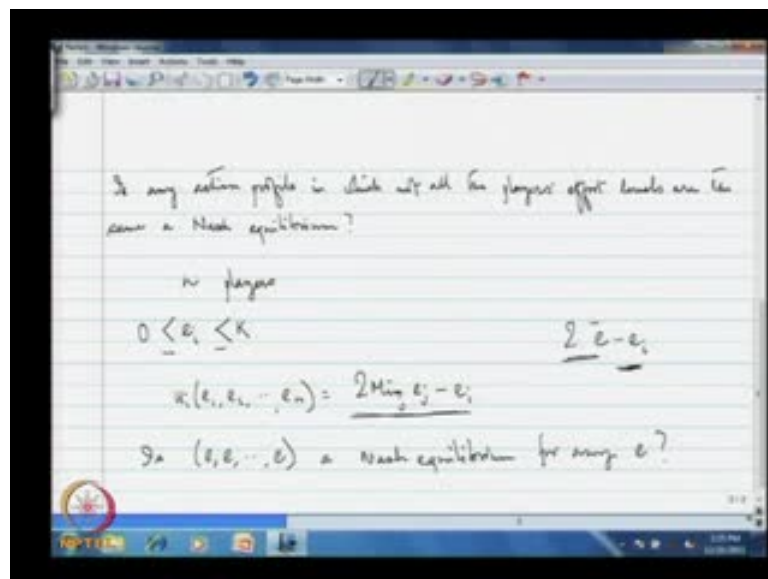 Is any action profile in which not all the players' effort levels are the
same a Nash equilibrium?
n players
0 ≤ e_i ≤ K
2 ē - e_i
u_i(e_1, e_2, ..., e_n) = 2 Min_j e_j - e_i
Is (e, e, ..., e) a Nash equilibrium for any e?
NPTEL